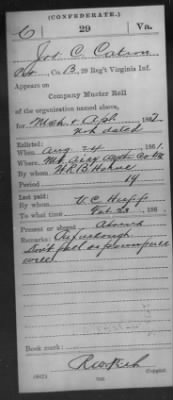 (CONFEDERATE.)
C 29 Va.
Jos C Catron
Pvt, Co. B, 29 Reg't Virginia Inf.
Appears on
Company Muster Roll
of the organization named above,
for Mch & Apl, 186
not dated
Enlisted:
When Aug 24, 1861.
Where Mt Airy
By whom
Period 1 y
Last paid:
By whom V. C. Huff
To what time Feb 28, 186
Present or absent Absent
Remarks: On furlough
Book mark:
(642) Copyist.